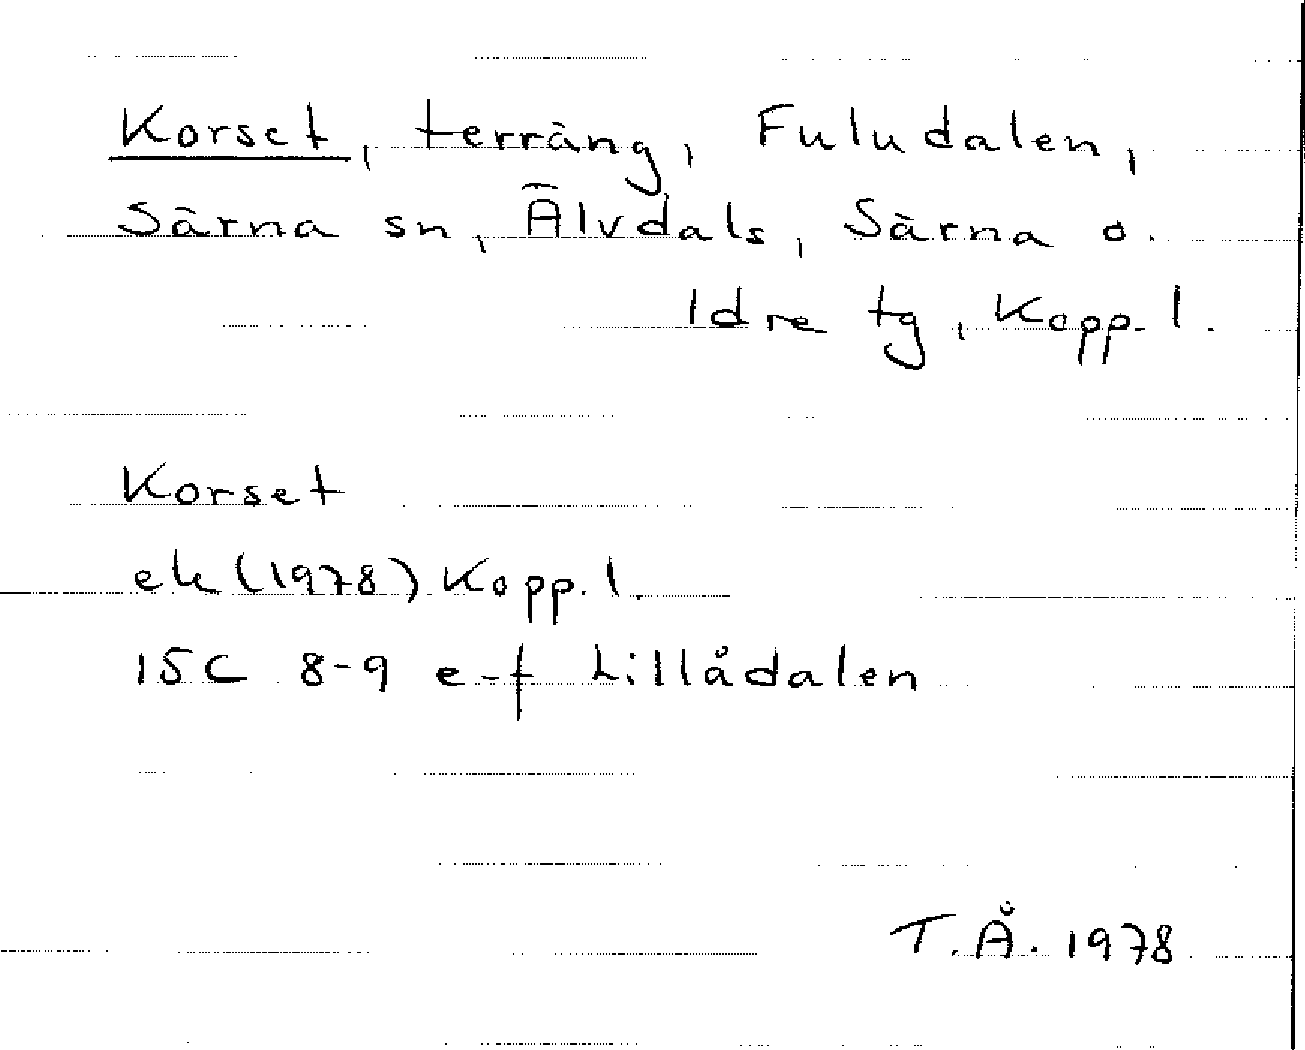 Korset, terräng, Fuludalen,
Särna sn, Älvdals, Särna o.
Idre tg, Kopp. l.
Korset
ek (1978) Kopp. l.
15C 8-9 e-f Lillådalen
T.Å. 1978